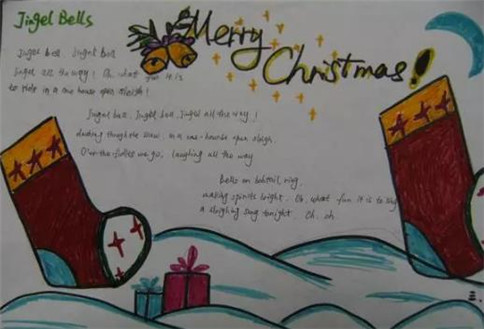 Jingel Bells
Merry
Christmas!
Jingel bell, Jingel bell
Jingel all the way! Oh what fun it is
to ride in a one house open sleigh!
Jingel bell, Jingel bell, Jingel all the way!
dashing though the snow, in a one-house open sleigh
O'er the fields we go, laughing all the way
Bells on bobtail ring,
making spirits bright. Oh, what fun it is to sing
a sleighing song tonight. Oh, oh.
三.